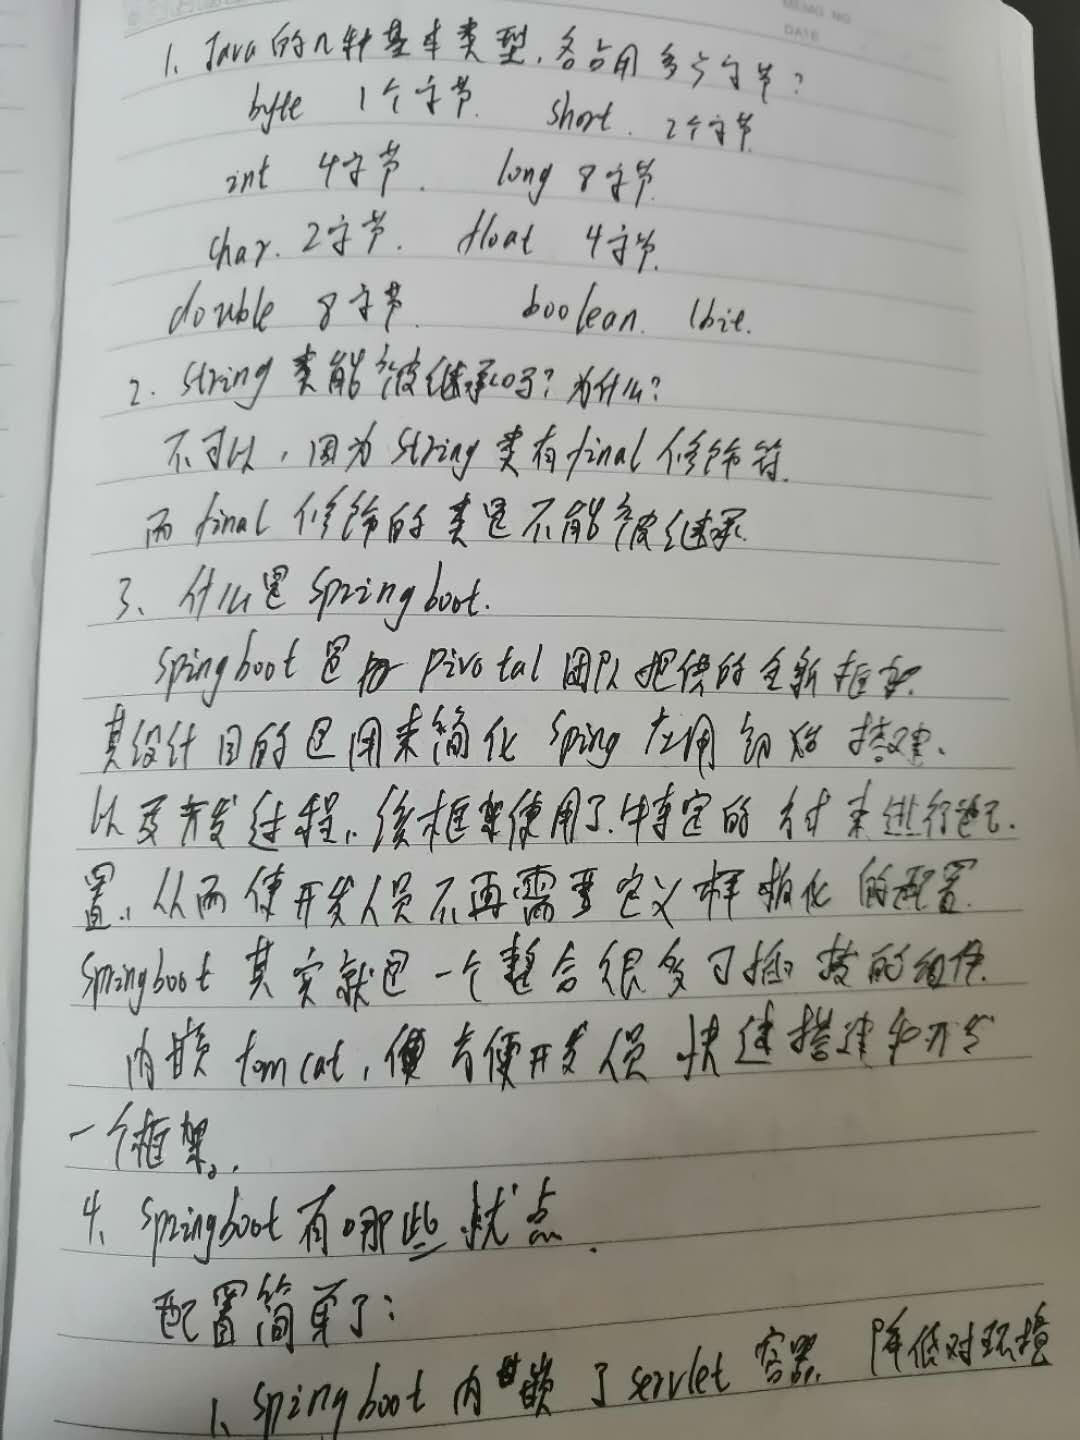 MEMO NO
DATE
1、Java的几种基本类型,各占用多少字节?
byte 1个字节. short. 2个字节
int 4字节. long 8字节
char. 2字节. float 4字节.
double 8字节. boolean. 1bit.
2. String 类能被继承吗?为什么?
不可以,因为String类有final修饰符.
而final修饰的类是不能被继承
3、什么是Springboot.
Spingboot是由Pivotal团队提供的全新框架.
其设计目的是用来简化Sping应用初始搭建、
以及开发过程.该框架使用了特定的方式来进行配
置.从而使开发人员不再需要定义样板化的配置.
Springboot其实就是一个整合很多可插拔的组件.
内嵌tomcat,便方便开发人员快速搭建和开发
一个框架。
4、Springboot有哪些优点.
配置简单了:
1、Springboot内嵌了servlet容器.降低对环境